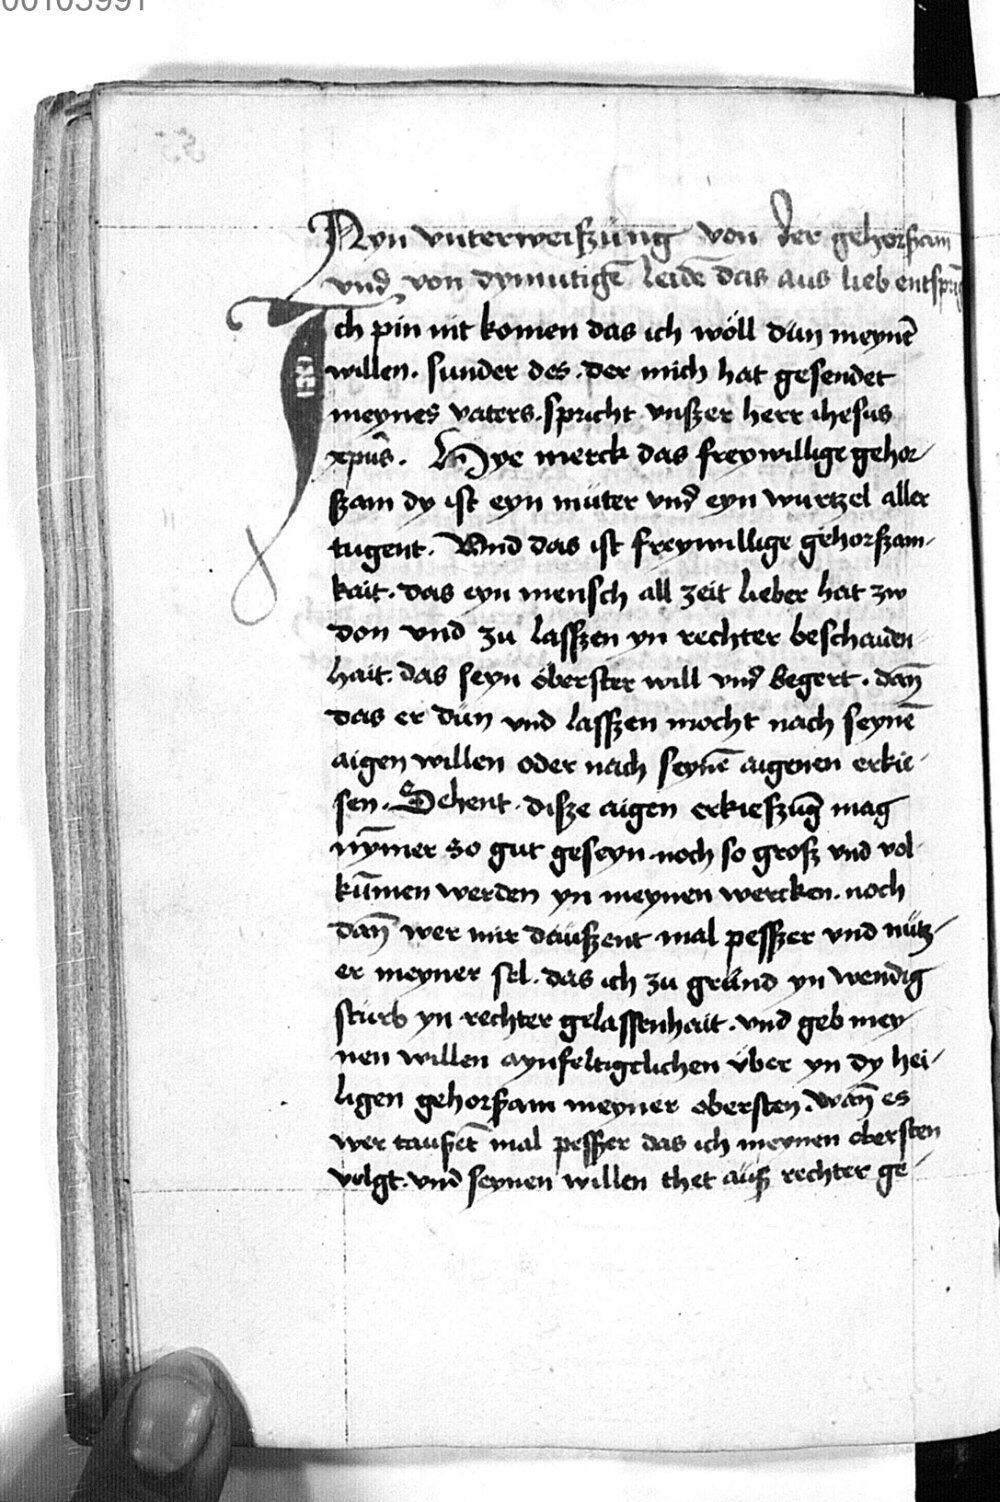 00103991
Ayn vnterweiszüng von der gehorsam
vnd von dymutigē leidē das aus lieb entsprīg
Ich pin nit komen das ich wöll dün meynē
willen. sunder des. der mich hat gesendet
meynes vaters. spricht vnszer herr ihesus
xpūs. Hye merck das freywillige gehor-
szam dy ist eyn müter vnd eyn wurtzel aller
tugent. Vnd das ist freywillige gehorszam-
kait. das eyn mensch all zeit lieber hat zw
don vnd zu lasszen yn rechter beschaiden-
hait. das seyn öberster will vnd begert. dañ
das er dün vnd lasszen mocht nach seynē
aigen willen oder nach seynē aigenen erkie-
sen. Sehent. disze aigen erkieszūg mag
nȳmer so gut geseyn noch so grosz vnd vol-
kūmen werden yn meynen wercken. noch
dañ wer mir dauszent mal pesszer vnd nütz-
er meyner sel. das ich zu gründ yn wendig
stürb yn rechter gelassenhait. vnd geb mey-
nen willen aynfeltigclichen über yn dy hei-
ligen gehorsam meyner obersten. wañ es
wer tauszēt mal pesszer das ich meynen obersten
volgt. vnd seynen willen thet aüsz rechter ge-